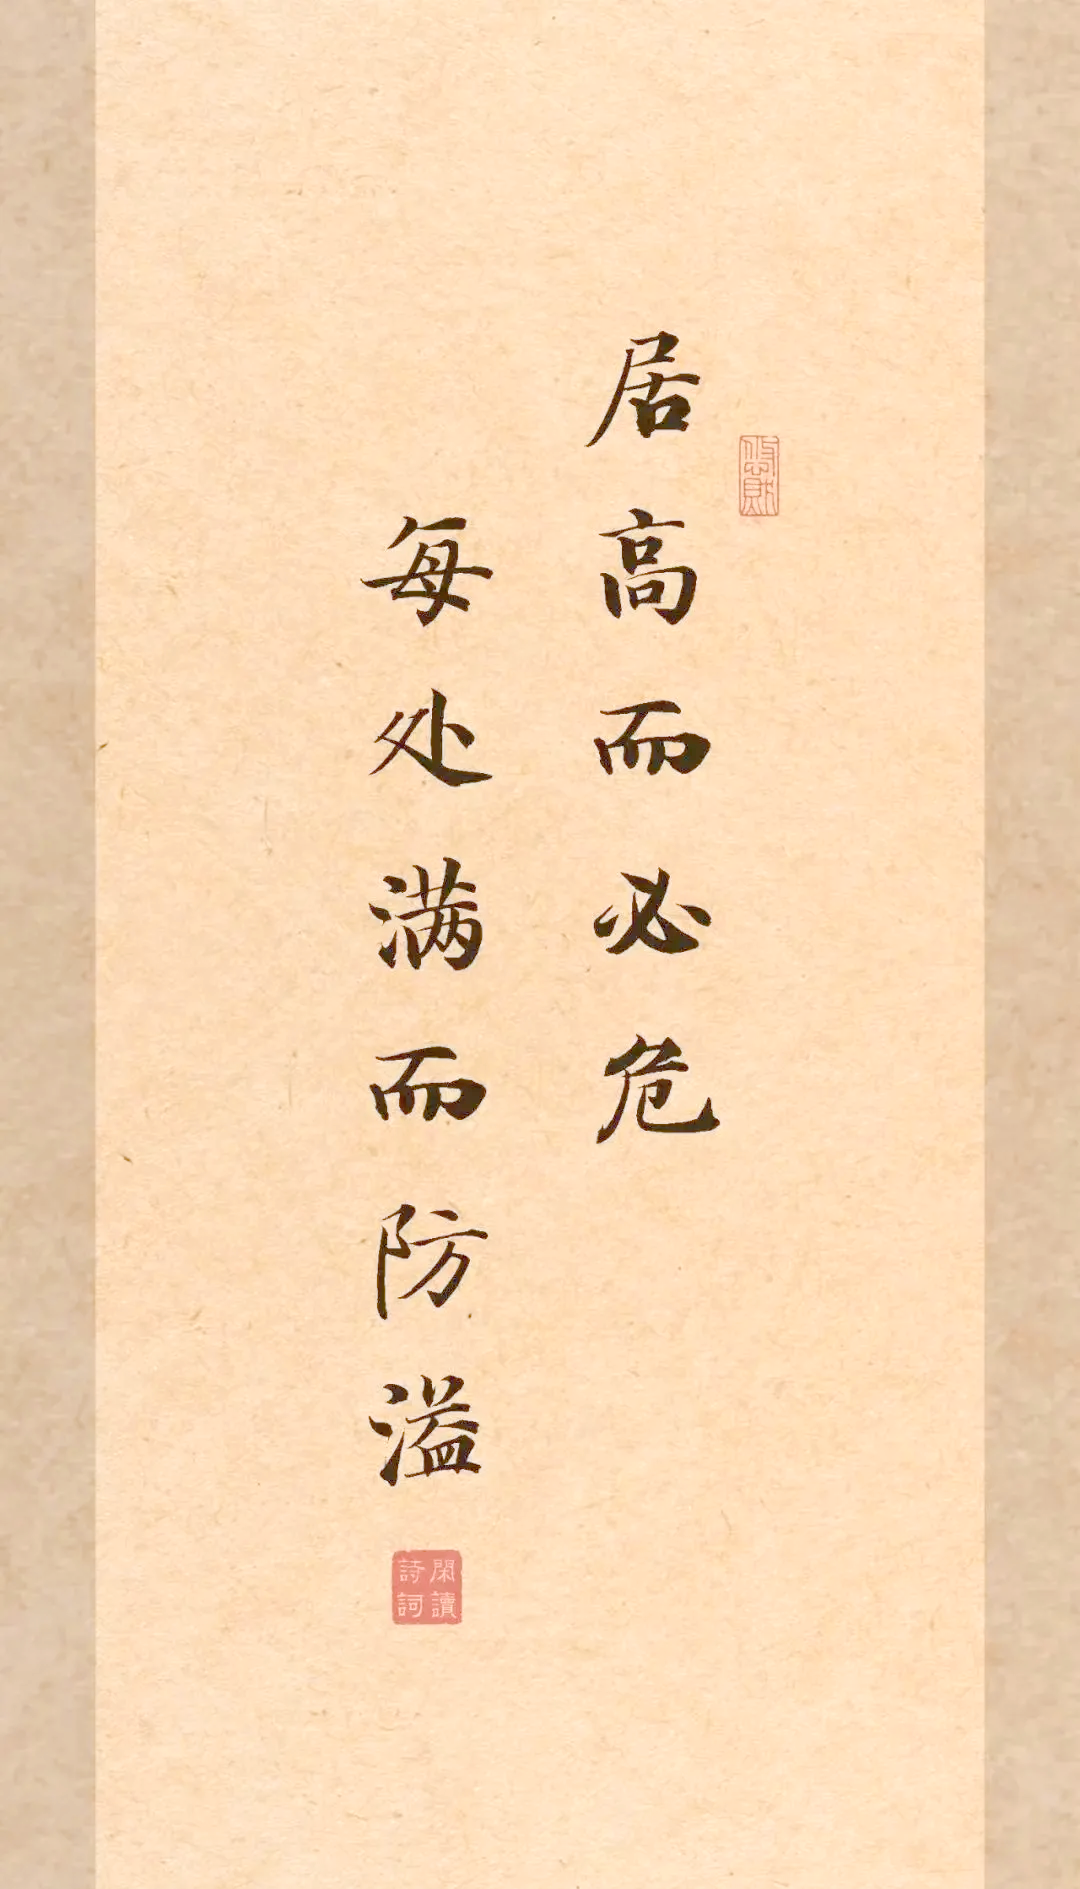 居高而必危
每处满而防溢
閑讀
詩詞